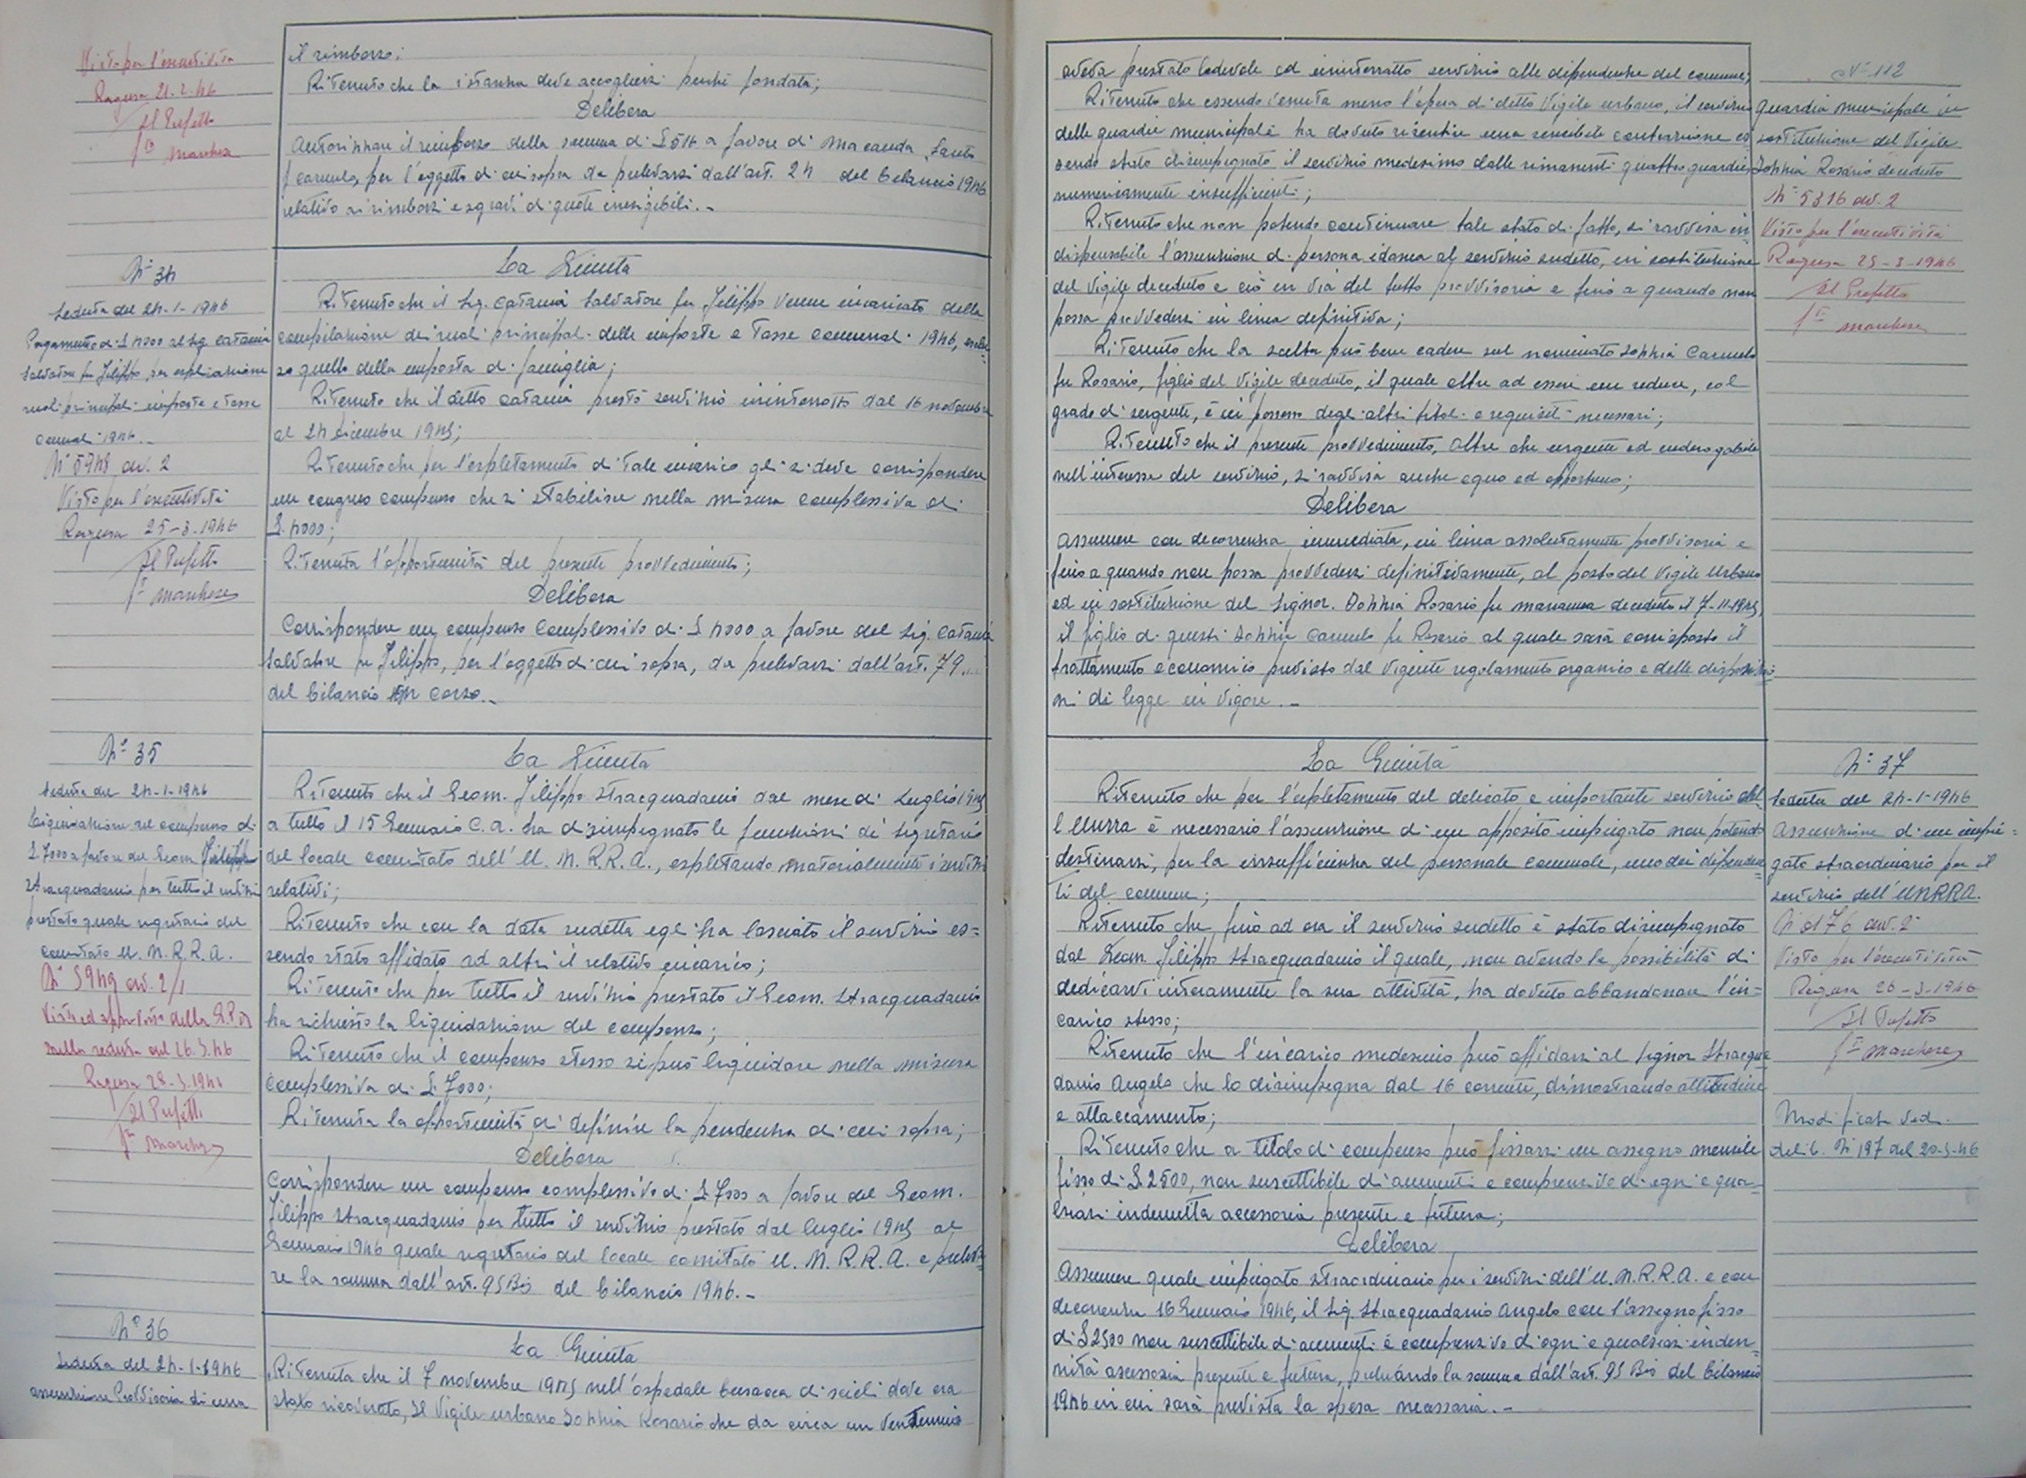 Visto per l'esecutività
Ragusa 21-2-46
Il Prefetto
f.to Marchese
il rimborso;
Ritenuto che la istanza deve accogliersi perchè fondata;
Delibera
autorizzare il rimborso della somma di £ 514 a favore di Macauda Santo
fu Carmelo, per l'oggetto di cui sopra da prelevarsi dall'art. 24 del bilancio 1946
relativo ai rimborsi e sgravi di quote inesigibili.-
N° 34
Seduta del 24-1-1946
Pagamento di £ 4000 al Sig. Catania
Salvatore fu Filippo per
ruoli principali imposte e tasse
comunali 1946.-
N° 5948 div. 2
Visto per l'esecutività
Ragusa 25-3-1946
Il Prefetto
f.to Marchese
La Giunta
Ritenuto che il Sig. Catania Salvatore fu Filippo venne incaricato della
compilazione dei ruoli principali delle imposte e tasse comunali 1946, esclu-
so quello della imposta di famiglia;
Ritenuto che il detto Catania prestò servizio ininterrotto dal 16 novembre
al 24 Dicembre 1945;
Ritenuto che per l'espletamento di tale incarico gli si deve corrispondere
un congruo compenso che si stabilisce nella misura complessiva di
£. 4000;
Ritenuta l'opportunità del presente provvedimento;
Delibera
Corrispondere un compenso complessivo di £ 4000 a favore del Sig. Catania
Salvatore fu Filippo, per l'oggetto di cui sopra, da prelevarsi dall'art. 79
del bilancio in corso.-
N° 35
Seduta del 24-1-1946
Liquidazione del compenso di
£ 7000 a favore del Geom. Filippo
Stracquadanio per tutto il servizio
prestato quale segretario del
comitato U.N.R.R.A.
N° 5949 div. 2/1
Visto ed approvato dalla G.P.A.
nella seduta del 26.3.46
Ragusa 28-3-1946
Il Prefetto
f.to Marchese
La Giunta
Ritenuto che il Geom. Filippo Stracquadanio dal mese di Luglio 1945
a tutto il 15 Gennaio c.a. ha disimpegnato le funzioni di segretario
del locale comitato dell'U.N.R.R.A., espletando materialmente i servizi
relativi;
Ritenuto che con la data sudetta egli ha lasciato il servizio es=
sendo stato affidato ad altri il relativo incarico;
Ritenuto che per tutto il servizio prestato il Geom. Stracquadanio
ha richiesto la liquidazione del compenso;
Ritenuto che il compenso stesso si può liquidare nella misura
complessiva di £. 7000;
Ritenuta la opportunità di definire la pendenza di cui sopra;
Delibera
Corrispondere un compenso complessivo di £ 7000 a favore del Geom.
Filippo Stracquadanio per tutto il servizio prestato dal luglio 1945 al
Gennaio 1946 quale segretario del locale comitato U.N.R.R.A. e preleva-
re la somma dall'art. 95 Bis del bilancio 1946.-
N° 36
Seduta del 24-1-1946
assunzione Provvisoria di una
La Giunta
Ritenuta che il 7 novembre 1945 nell'ospedale Busacca di Scicli dove era
stato ricoverato, il Vigile urbano Sophia Rosario che da circa un ventennio
aveva prestato lodevole ed ininterrotto servizio alle dipendenze del comune;
Ritenuto che essendo venuta meno l'opera di detto Vigile urbano, il servizio
delle guardie municipali ha dovuto risentire una sensibile contrazione es-
sendo stato disimpegnato il servizio medesimo dalle rimanenti quattro guardie,
numericamente insufficienti;
Ritenuto che non potendo continuare tale stato di fatto, si ravvisa in-
dispensabile l'assunzione di persona idonea al servizio sudetto, in sostituzione
del Vigile deceduto e ciò in via del tutto provvisoria e fino a quando non
possa provvedersi in linea definitiva;
Ritenuto che la scelta può bene cadere sul nominato Sophia Carmelo
fu Rosario, figlio del Vigile deceduto, il quale oltre ad essere un reduce, col
grado di sergente, è in possesso degli altri titoli e requisiti necessari;
Ritenuto che il presente provvedimento, oltre che urgente ed inderogabile
nell'interesse del servizio, si ravvisa anche equo ed opportuno;
Delibera
assumere con decorrenza immediata, in linea assolutamente provvisoria e
fino a quando non possa provvedersi definitivamente, al posto del Vigile Urbano
ed in sostituzione del Signor Sophia Rosario fu deceduto il 7-11-1945
il figlio di questi Sophia Carmelo fu Rosario al quale sarà corrisposto il
trattamento economico previsto dal vigente regolamento organico e dalle disposizio-
ni di legge in vigore.-
N° 112
guardia municipale in
sostituzione del Vigile
Sophia Rosario deceduto
N° 5316 div. 2
Visto per l'esecutività
Ragusa 25-3-1946
Il Prefetto
f.to Marchese
La Giunta
Ritenuto che per l'espletamento del delicato e importante servizio del-
l'Unrra è necessario l'assunzione di un apposito impiegato non potendo
destinarsi, per la insufficienza del personale comunale, uno dei dipenden=
ti del comune;
Ritenuto che fino ad ora il servizio sudetto è stato disimpegnato
dal Geom. Filippo Stracquadanio il quale, non avendo la possibilità di
dedicarvi interamente la sua attività, ha dovuto abbandonare l'in=
carico stesso;
Ritenuto che l'incarico medesimo può affidarsi al Signor Stracqua-
danio Angelo che lo disimpegna dal 16 corrente, dimostrando attitudine
e attaccamento;
Ritenuto che a titolo di compenso può fissarsi un assegno mensile
fisso di £. 2500, non suscettibile di aumenti e comprensivo di ogni e qual-
siasi indennità accessoria presente e futura;
Delibera
Assumere quale impiegato straordinario per i servizi dell'U.N.R.R.A. e con
decorrenza 16 Gennaio 1946, il Sig. Stracquadanio Angelo con l'assegno fisso
di £ 2500 non suscettibile di aumenti e comprensivo di ogni e qualsiasi inden-
nità accessoria presente e futura, prelevando la somma dall'art. 95 Bis del bilancio
1946 in cui sarà prevista la spesa necessaria.-
N° 37
Seduta del 24-1-1946
Assunzione di un impie=
gato straordinario per il
servizio dell'UNRRA.
N° 6176 div. 2
Visto per l'esecutività
Ragusa 26-3-1946
Il Prefetto
f.to Marchese
Modificata Ved.
delib. N° 197 del 20-5-46